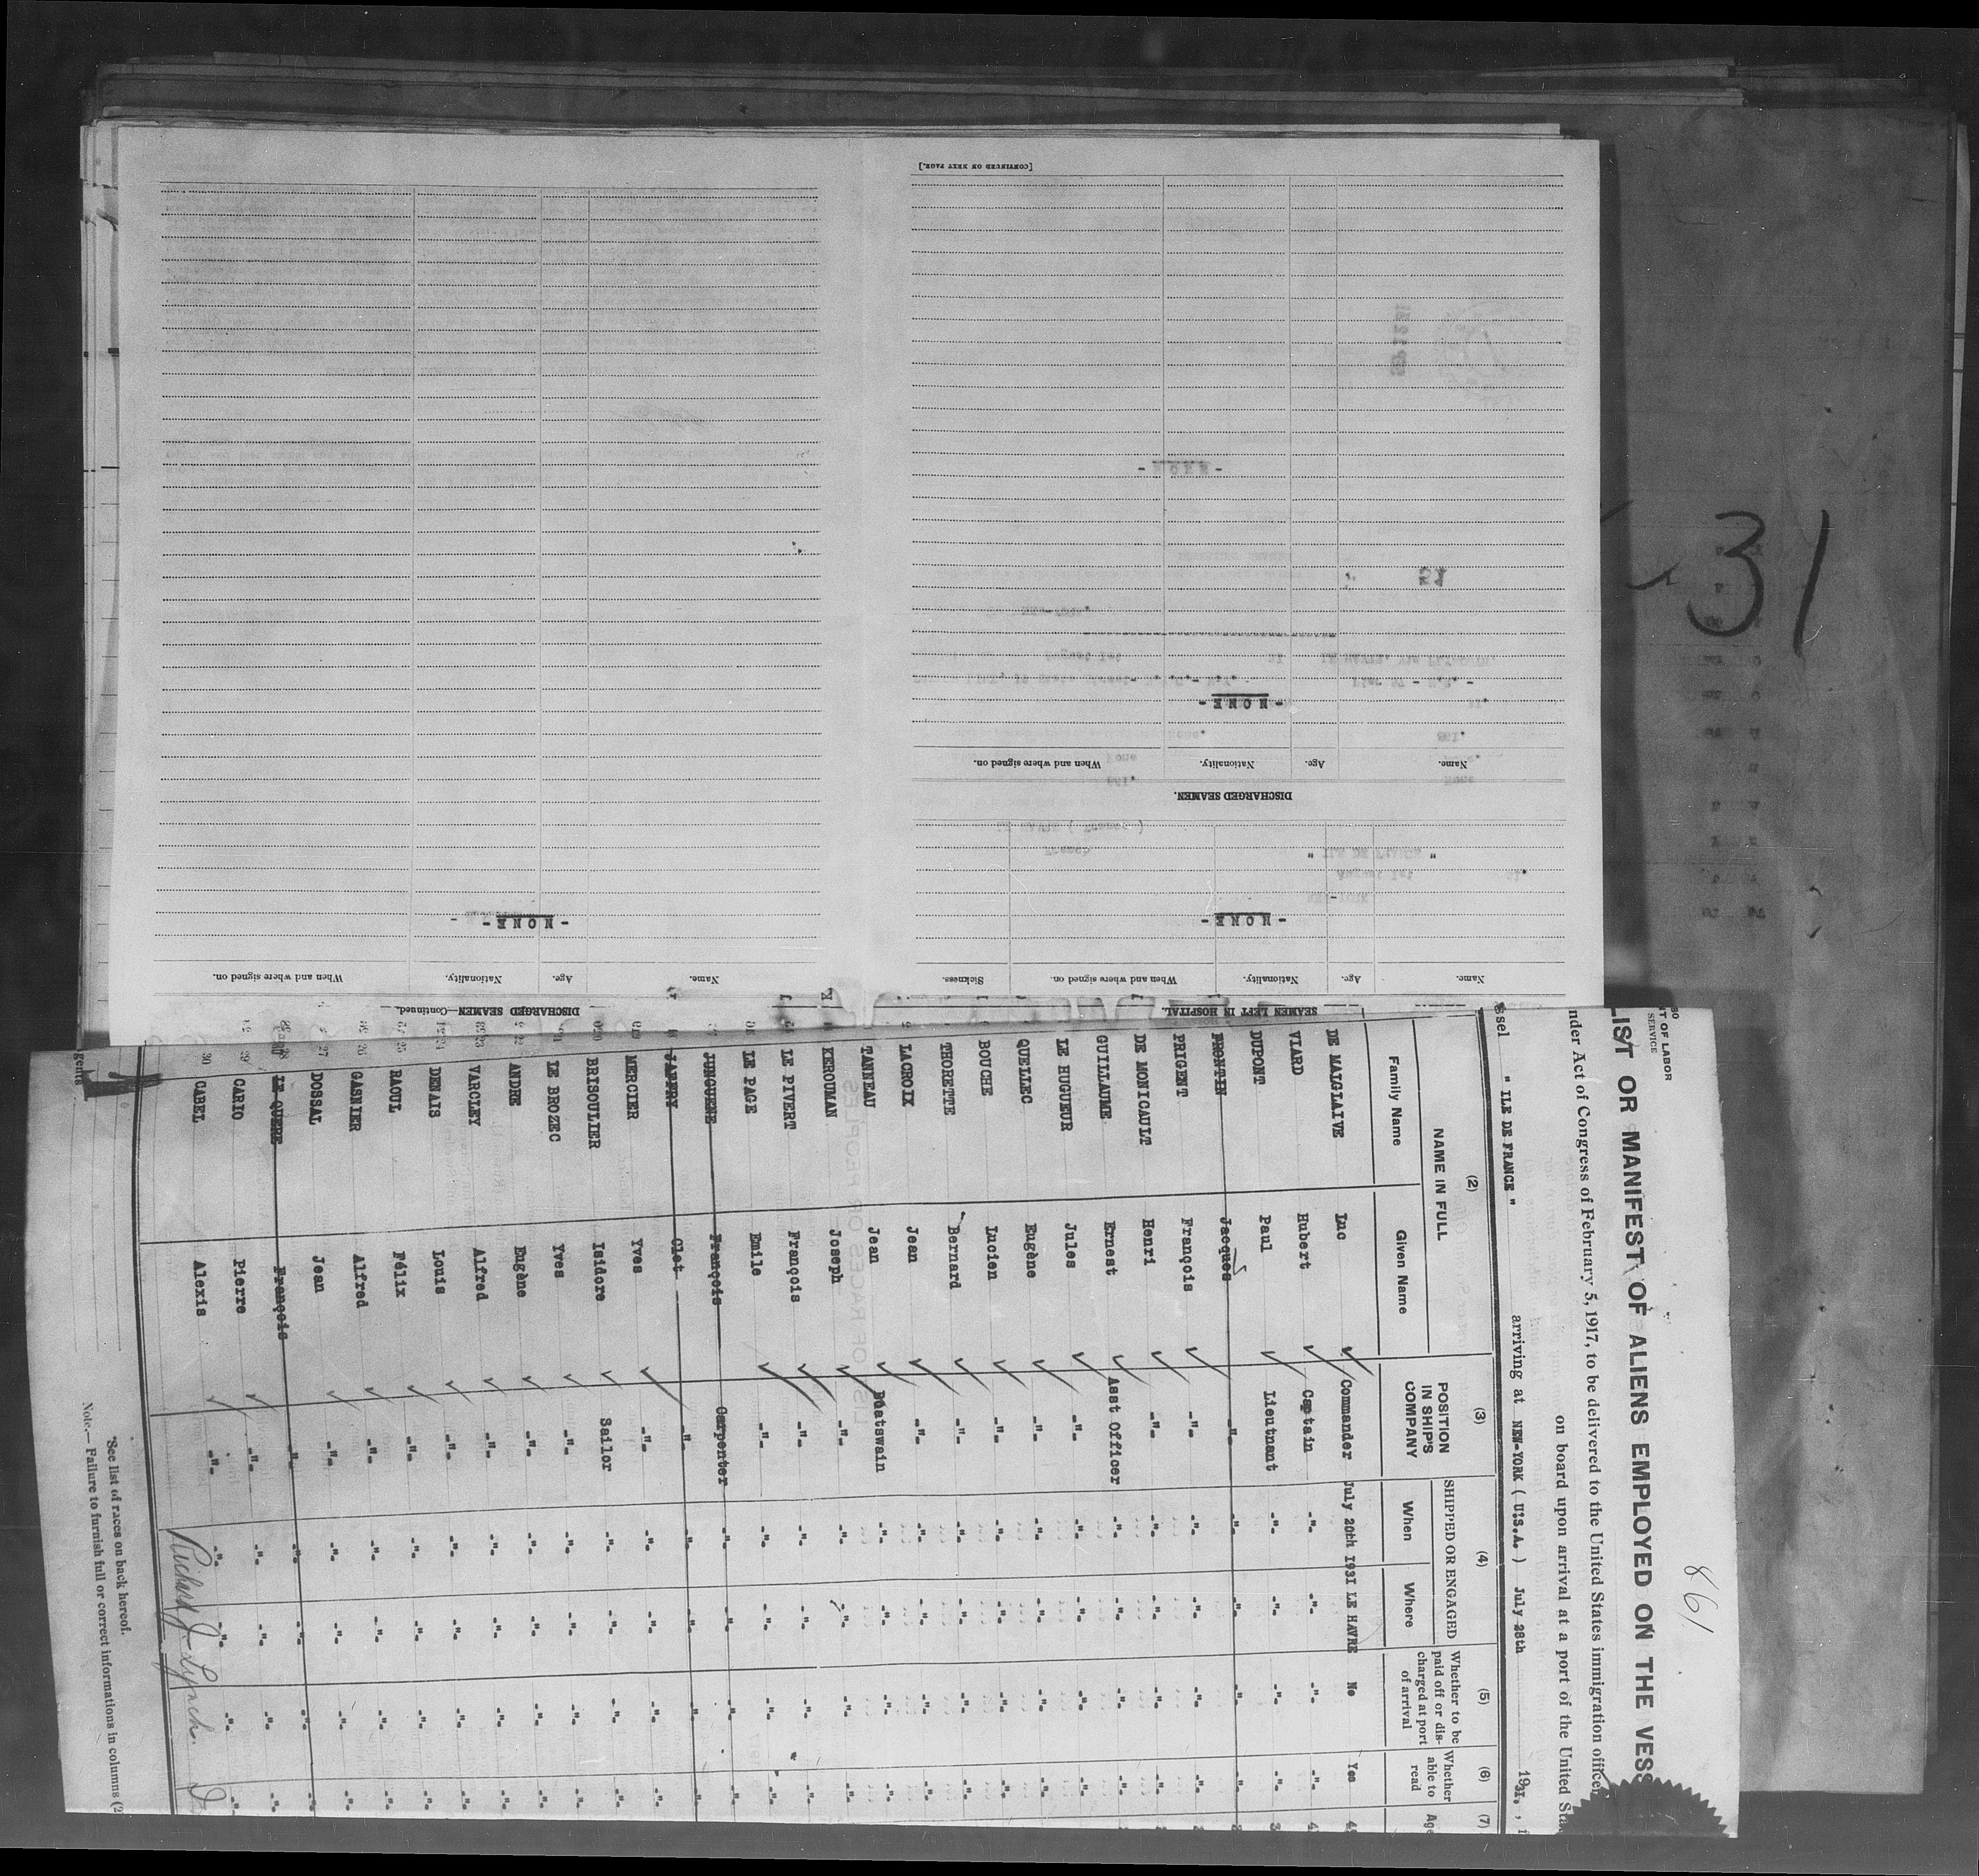 [CONTINUED ON NEXT PAGE.]
- NONE -
- NONE -
Name. Age. Nationality. When and where signed on.
DISCHARGED SEAMEN.
- NONE -
Name. Age. Nationality. When and where signed on. Sickness.
SEAMEN LEFT IN HOSPITAL.
- NONE -
Name. Age. Nationality. When and where signed on.
DISCHARGED SEAMEN—Continued.
31
861
T OF LABOR
SERVICE
LIST OR MANIFEST OF ALIENS EMPLOYED ON THE VESS
nder Act of Congress of February 5, 1917, to be delivered to the United States immigration office
on board upon arrival at a port of the United Sta
ssel " ILE DE FRANCE " arriving at NEW-YORK ( U.S.A. ) July 28th 1931.
(2) (3) (4) (5) (6) (7)
NAME IN FULL POSITION IN SHIP'S COMPANY SHIPPED OR ENGAGED Whether to be paid off or discharged at port of arrival Whether able to read Age
Family Name Given Name When Where
DE MALGLAIVE Luc Commander July 20th 1931 LE HAVRE No Yes
VIARD Hubert Captain -"- -"- -"- -"-
DUPONT Paul Lieutnant -"- -"- -"- -"-
FRONTIN Jacques -"- -"- -"- -"- -"-
PRIGENT François -"- -"- -"- -"- -"-
DE MONICAULT Henri -"- -"- -"- -"- -"-
GUILLAUME Ernest Asst Officer -"- -"- -"- -"-
LE HUGUEUR Jules -"- -"- -"- -"- -"-
QUELLEC Eugène -"- -"- -"- -"- -"-
BOUCHE Lucien -"- -"- -"- -"- -"-
THORETTE Bernard -"- -"- -"- -"- -"-
LACROIX Jean -"- -"- -"- -"- -"-
TANNEAU Jean Boatswain -"- -"- -"- -"-
KEROUMAN Joseph -"- -"- -"- -"- -"-
LE PIVERT François -"- -"- -"- -"- -"-
LE PAGE Emile -"- -"- -"- -"- -"-
JUNGUENE François Carpenter -"- -"- -"- -"-
JAFFRY Clet -"- -"- -"- -"- -"-
MERCIER Yves -"- -"- -"- -"- -"-
BRISOULIER Isidore Sailor -"- -"- -"- -"-
LE BROZEC Yves -"- -"- -"- -"- -"-
ANDRE Eugène -"- -"- -"- -"- -"-
VARCLEY Alfred -"- -"- -"- -"- -"-
DENAIS Louis -"- -"- -"- -"- -"-
RAOUL Félix -"- -"- -"- -"- -"-
26 GASNIER Alfred -"- -"- -"- -"- -"-
27 DOSSAL Jean -"- -"- -"- -"- -"-
28 LE QUERE François -"- -"- -"- -"- -"-
29 CARIO Pierre -"- -"- -"- -"- -"-
30 CABEL Alexis -"- -"- -"- -"-
Richard J. Lynch
*See list of races on back hereof.
Note.— Failure to furnish full or correct informations in columns (2
gents